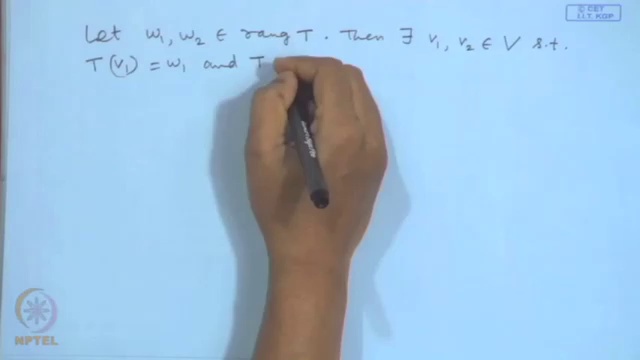 © CET
I.I.T. KGP
Let w₁, w₂ ∈ rang T. Then ∃ v₁, v₂ ∈ V s.t.
T(v₁) = w₁ and T
NPTEL